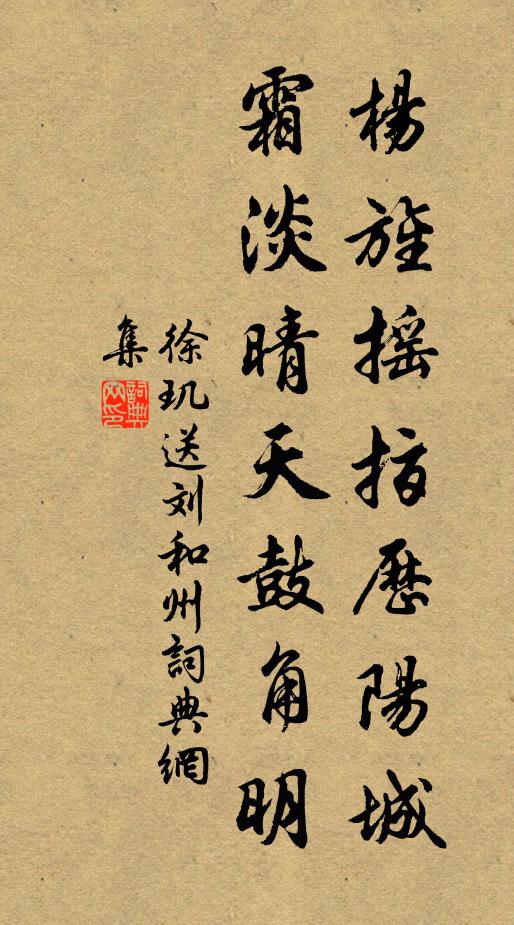 楊旌摇指歷陽城
霜淡晴天鼓角明
徐玑送刘和州詞典網
集
詞典網印